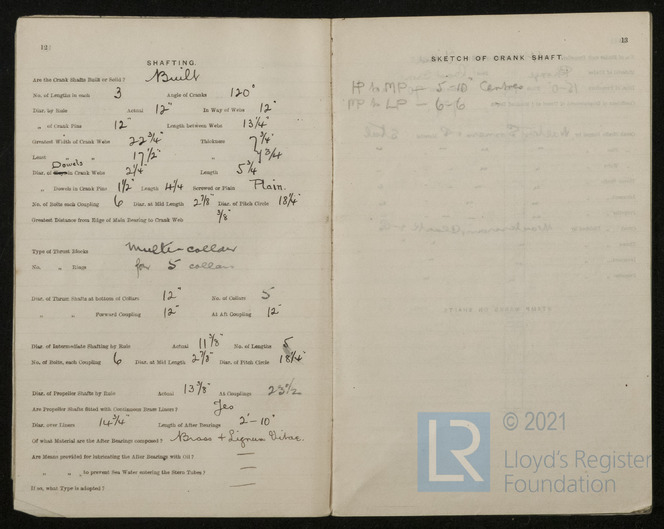 12
SHAFTING.
Are the Crank Shafts Built or Solid? Built
No. of Lengths in each 3 Angle of Cranks 120°
Diar. by Rule Actual 12" In Way of Webs 12"
" of Crank Pins 12" Length between Webs 13 1/4"
Greatest Width of Crank Webs 22 3/4" Thickness 7 3/4"
Least " 17 1/2" " 7 3/4
Diar. of Dowels in Crank Webs 2 1/4" Length 5 3/4
" Dowels in Crank Pins 1 1/2" Length 4 1/4 Screwed or Plain Plain.
No. of Bolts each Coupling 6 Diar. at Mid Length 2 7/8" Diar. of Pitch Circle 18 1/4"
Greatest Distance from Edge of Main Bearing to Crank Web 3/8"
Type of Thrust Blocks Multi-collar
No. " Rings for 5 collars
Diar. of Thrust Shafts at bottom of Collars 12" No. of Collars 5
" " Forward Coupling 12" At Aft Coupling 12"
Diar. of Intermediate Shafting by Rule Actual 11 3/8" No. of Lengths 5
No. of Bolts, each Coupling 6 Diar. at Mid Length 2 7/8" Diar. of Pitch Circle 18 1/4"
Diar. of Propeller Shafts by Rule Actual 13 3/8" At Couplings 23 1/2
Are Propeller Shafts fitted with Continuous Brass Liners? Yes
Diar. over Liners 14 3/4" Length of After Bearings 2'-10"
Of what Material are the After Bearings composed? Brass + Lignum Vitae.
Are Means provided for lubricating the After Bearings with Oil? —
" " to prevent Sea Water entering the Stern Tubes? —
If so, what Type is adopted? —
13
SKETCH OF CRANK SHAFT
HP to MP — 5-10" Centres
MP to LP — 6-6
LR
© 2021
Lloyd's Register
Foundation